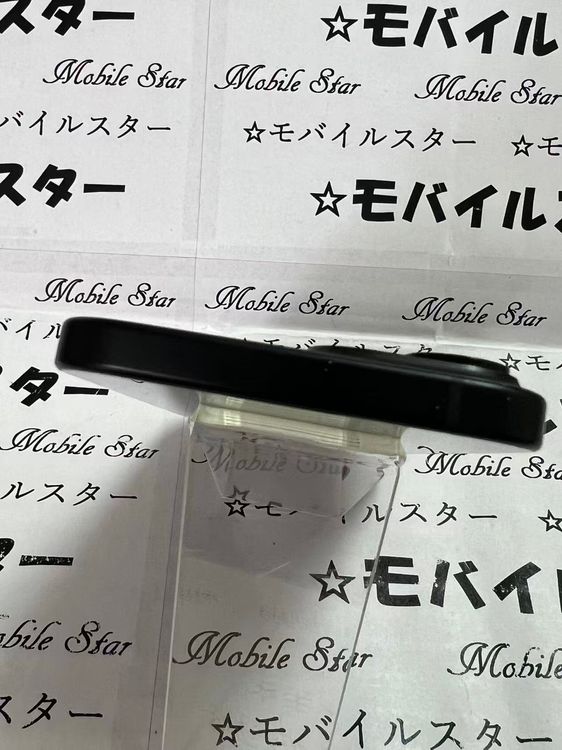 スター ☆モバイル
Mobile Star Mobile Star Mobile Star
バイルスター ☆モバイルスター ☆モ
スター ☆モバイルス
Mobile Star Mobile Star Mobile Star
バイル ☆モ
スター
Mobile Star Mobile Star Mobile Sta
ルスター ☆モバイルスター ☆
ー ☆モバイル
obile Star Mobile Star Mobile
スター ☆モバイルスター